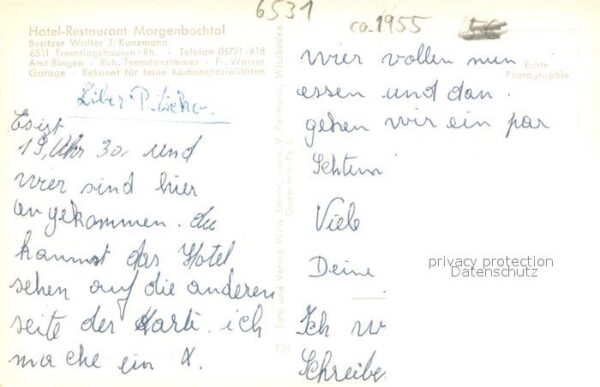 6531
ca. 1955
Hotel-Restaurant Morgenbachtal
Besitzer Walter J. Kunzmann
6531 Trechtingshausen/Rh. · Telefon 06721-618
Amt Bingen · Ruh. Fremdenzimmer · Fl. Wasser
Garage · Bekannt für feine Küchenspezialitäten
Echte
Photographie
Liber
Es ist
19 Uhr 30 und
wier sind hier
angekommen. du
kannst das Hotel
sehen auf die anderen
seite der Karte. ich
mache ein X.
Foto und Verlag Willy
wier vollen nun
essen und dan.
gehen wir ein par
Viele
Deine
Ich w
Schreibe
privacy protection
Datenschutz